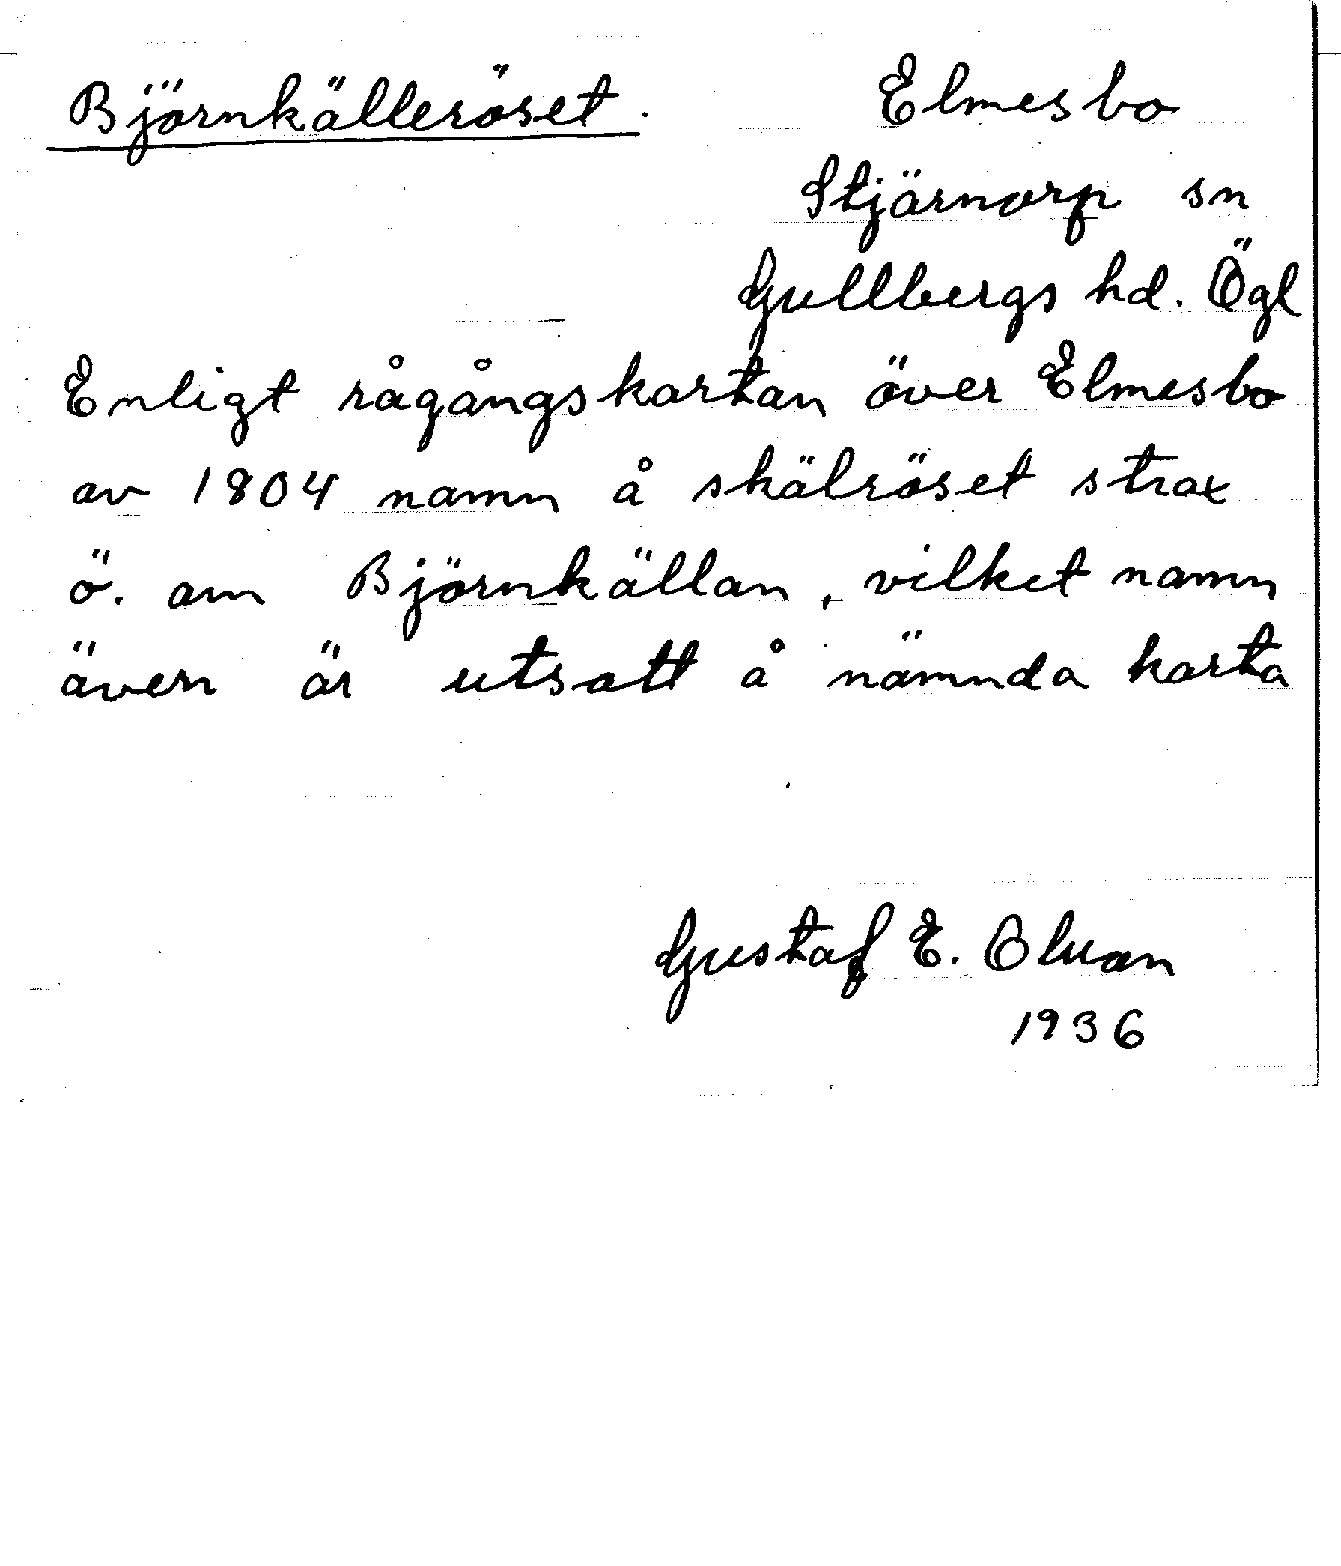 Björnkälleröset.
Elmesbo
Stjärnorp sn
Gullbergs hd. Ögl
Enligt rågångskartan över Elmesbo
av 1804 namn å skälröset strax
ö. om Björnkällan, vilket namn
även är utsatt å nämnda karta
Gustaf E.
1936